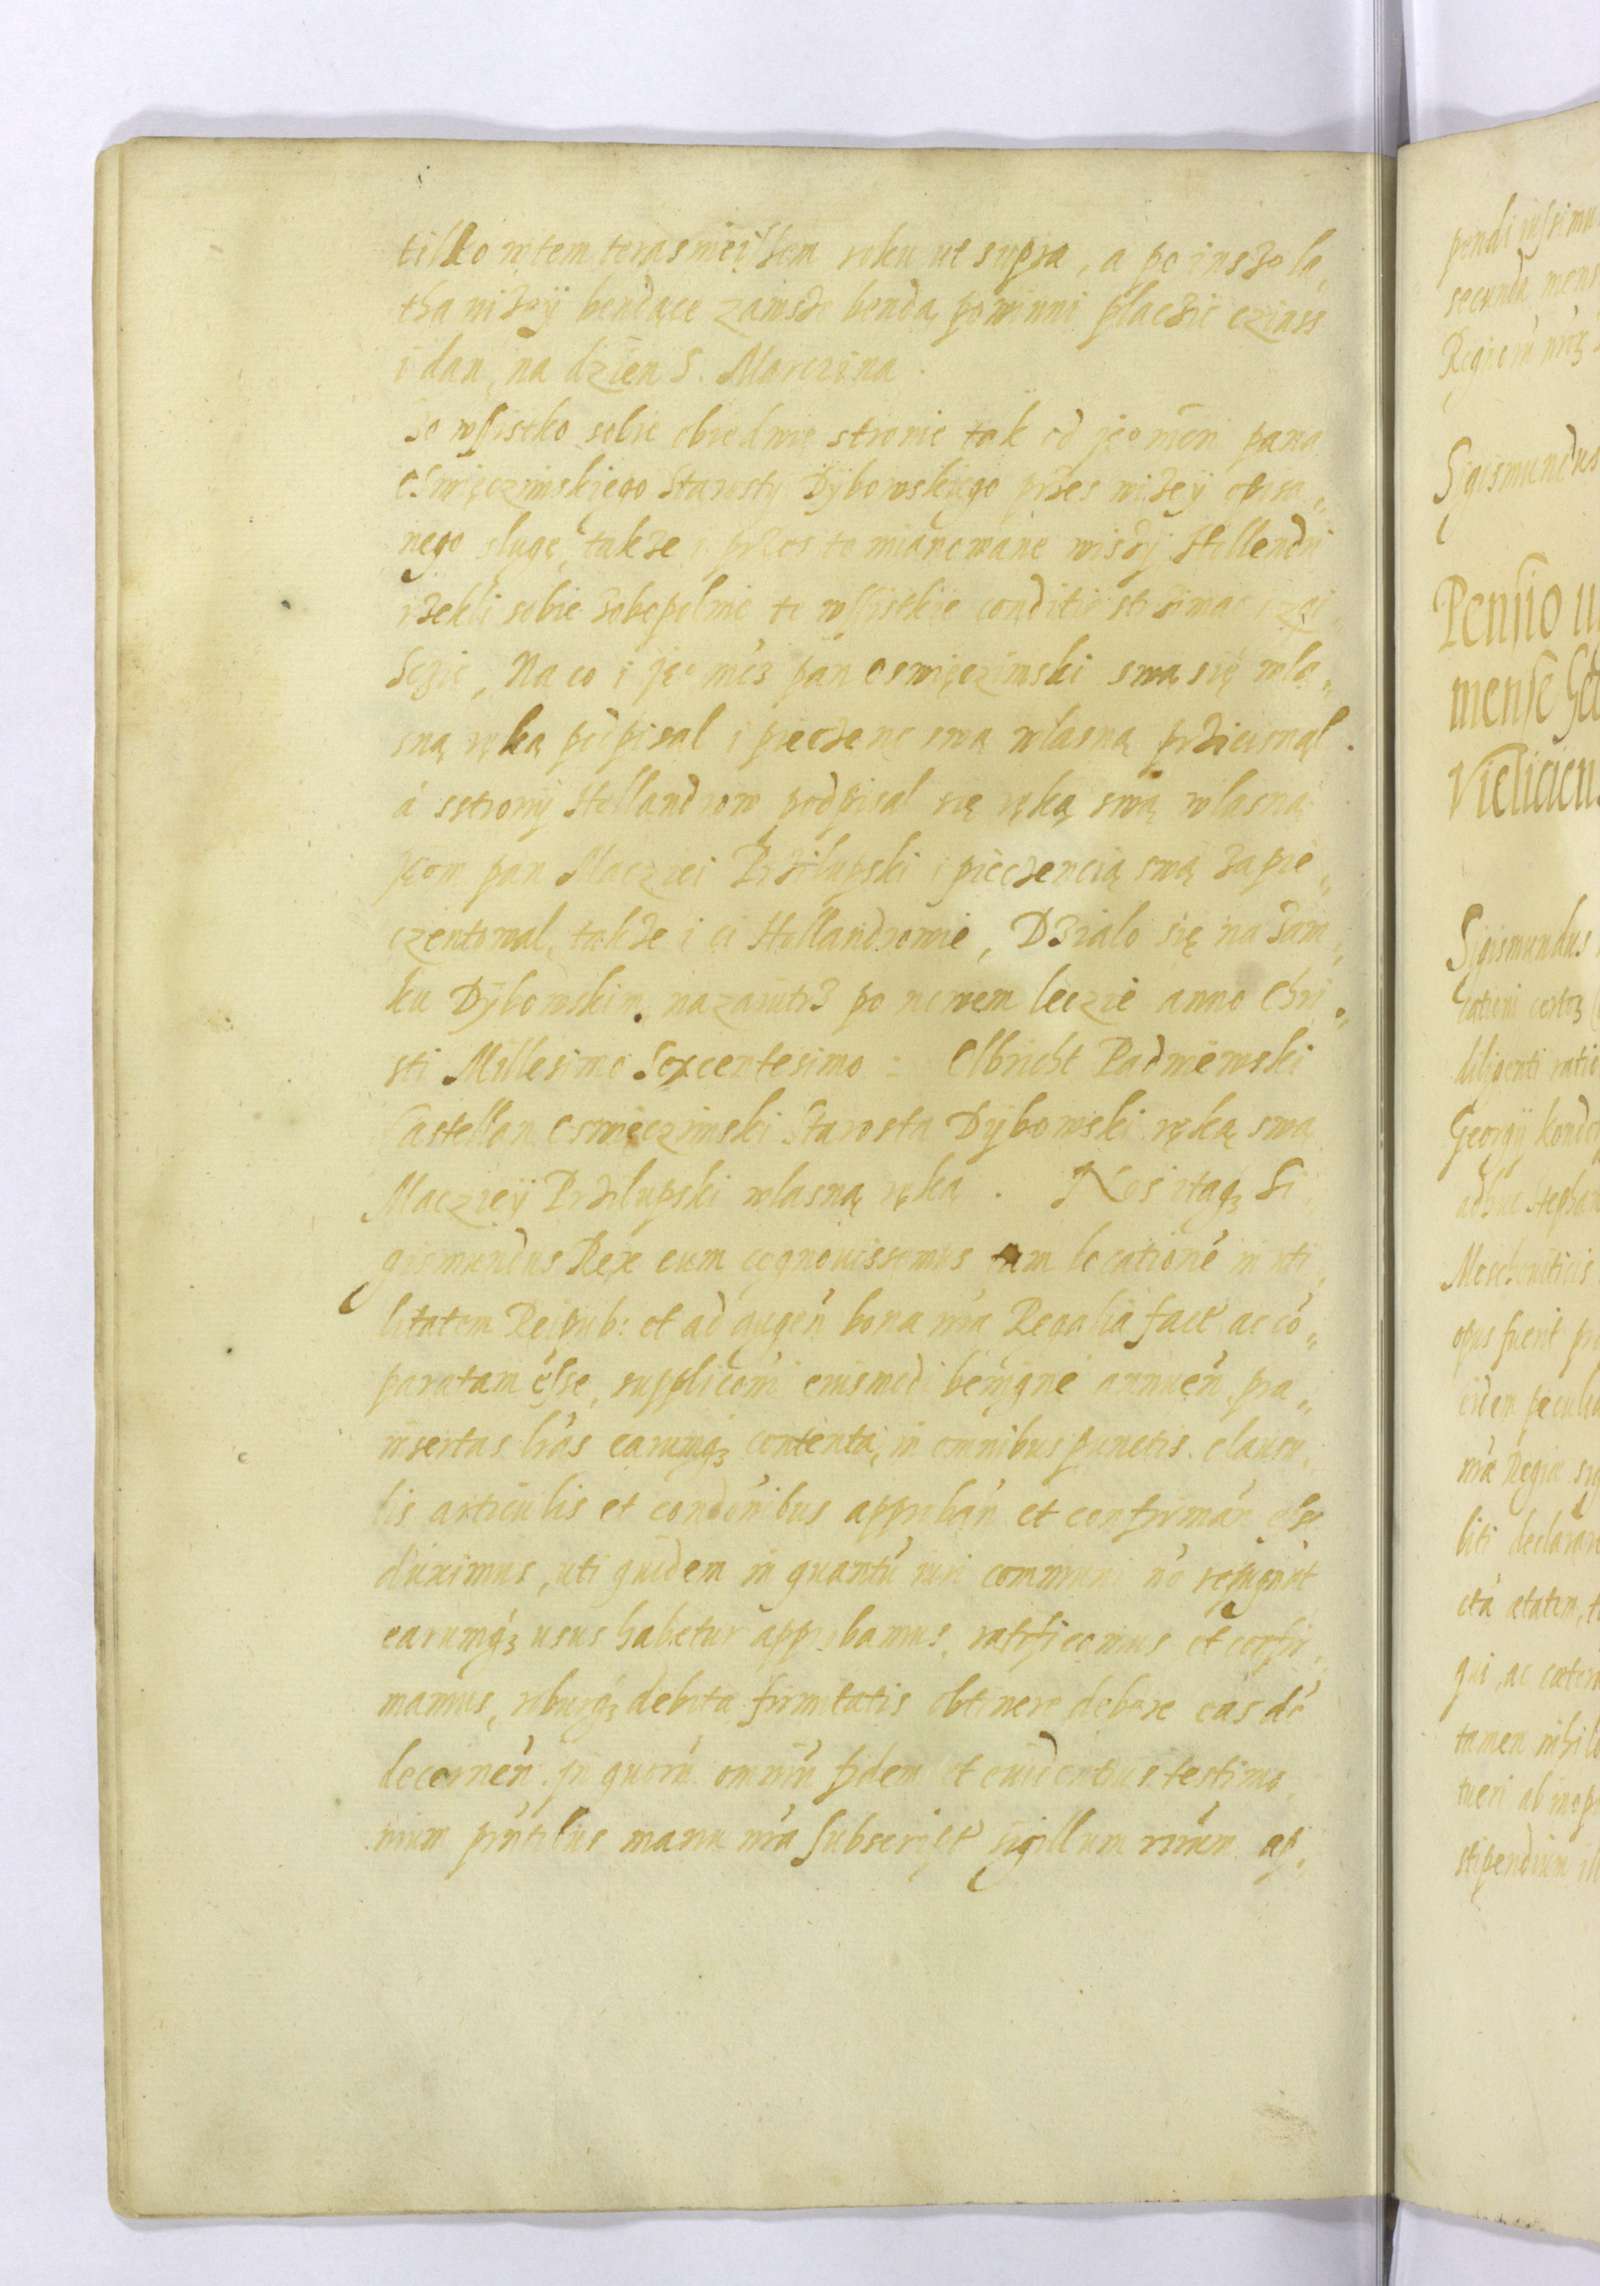 tilko wtem terasnieiszem roku ut supra, a po insze la,
tha niżeÿ bendące zawsze benda powinni placzic czinss
i dan, na dzien S. Marczina.
To wssistko sobie obiedwie stronie tak od jeo mci pana
Oswięczimskiego Starosty Dÿbowskiego przes wiżeÿ opisa„
nego slugę, także i przes to mianowane wiszÿ Hollendri
rzekli sobie zobopolnie te wssistkie conditie strzimac i
Na co i jeo mcz pan Oswięczimski swą się wla„
sną ręką podpisal i pieczenc swą wlasną przicisnąl.
á sstrony Hollandrow podpisal się ręką swą wlasną
pan Maczei Przilupski i pieczencią swą zapie„
czentowal, także i ci Hollandrowie, Dzialo się na zam,
ku Dÿbowskim, nazaiutrz po nowem leczie anno Chri„
sti Millesimo Sexcentesimo: Olbricht Padniewski
Castellan Oswięczimski Starosta Dÿbowski ręką swą
Maczieÿ Przilupski wlasną ręką. Nos itaqꝫ Si
gismundus Rex cum cognouissemus eam locationē in uti,
litatem Reipub: et ad augen̄ bona nrā Regalia fact ac cō„
paratam esse, supplicōni eiusmodi benigne annuen̄ præ„
insertas lrās earumqꝫ contenta, in omnibus punctis clausu,
lis articulis et condōnibus approban̄ et confirman̄ esse
duximus, uti quidem in quantū iuri communi nō repugnāt
earumqꝫ usus habetur approbamus, ratificamus et confir„
mamus, roburqꝫ debitæ firmitatis obtinere debere eas dē
decernen̄. In quorū omniū fidem et euidentius testimo,
nium pn̄tibus manu nrā subscript sigillum nrūm ap,
pendi iussimus
secunda mens
Regnorū nrōꝝ
Sigismundus
Pensio
mense
Sigismundus
rationi certoꝫ
diligenti ratio
Georgÿ
adhuc Stephan
Moschouiticis
opus fuerit
eidem
nrā Regiæ
liti declarare
ætatem, t
qui, ac cætera
tamen nihilo
tueri ab inopi
stipendium